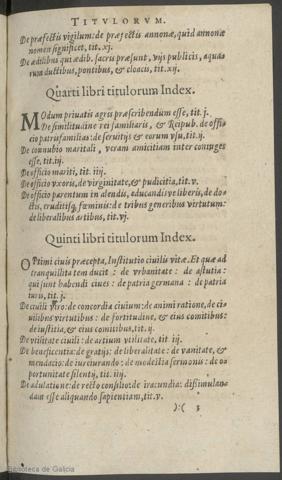 TITVLORVM.
De præfectis vigilum: de præfectis annonæ, quid annonæ
nomen significet, tit. xj.
De ædilibus qui ædib. sacris præsunt, vijs publicis, aqua
rum ductibus, pontibus, & cloacis, tit. xij.
Quarti libri titulorum Index.
MOdum priuatis agris præscribendum esse, tit. j.
De similitudine rei familiaris, & Reipub. de offi
cio patrisfamilias: de seruitijs & eorum vsu, tit. ij.
De connubio maritali, veram amicitiam inter coniuges
esse, tit. iij.
De officio mariti, tit. iiij.
De officio vxoris, de virginitate, & pudicitia, tit. v.
De officio parentum in alendis, educandisque liberis, de do-
ctis, eruditisque fœminis: de tribus generibus virtutum:
de liberalibus artibus, tit. vj.
Quinti libri titulorum Index.
OPtimi ciuis præcepta, Institutio ciuilis vitæ. Et quæ ad
tranquillitatem ducit: de vrbanitate: de astutia:
qui sunt habendi ciues: de patria germana: de patria
iuris, tit. j.
De ciuili viro: de concordia ciuium: de animi ratione, de ci-
uilibus virtutibus: de fortitudine, & eius comitibus:
de iustitia, & eius comitibus, tit. ij.
De vtilitate ciuili: de artium vtilitate, tit iij.
De beneficentia: de gratijs: de liberalitate: de vanitate, &
mendacio: de iureiurando: de modestia sermonis: de op
portunitate silentij, tit. iiij.
De adulatione: de recto consilio: de iracundia: dissimulan
dam esse aliquando sapientiam, tit. v.
):( 3
Biblioteca de Galicia